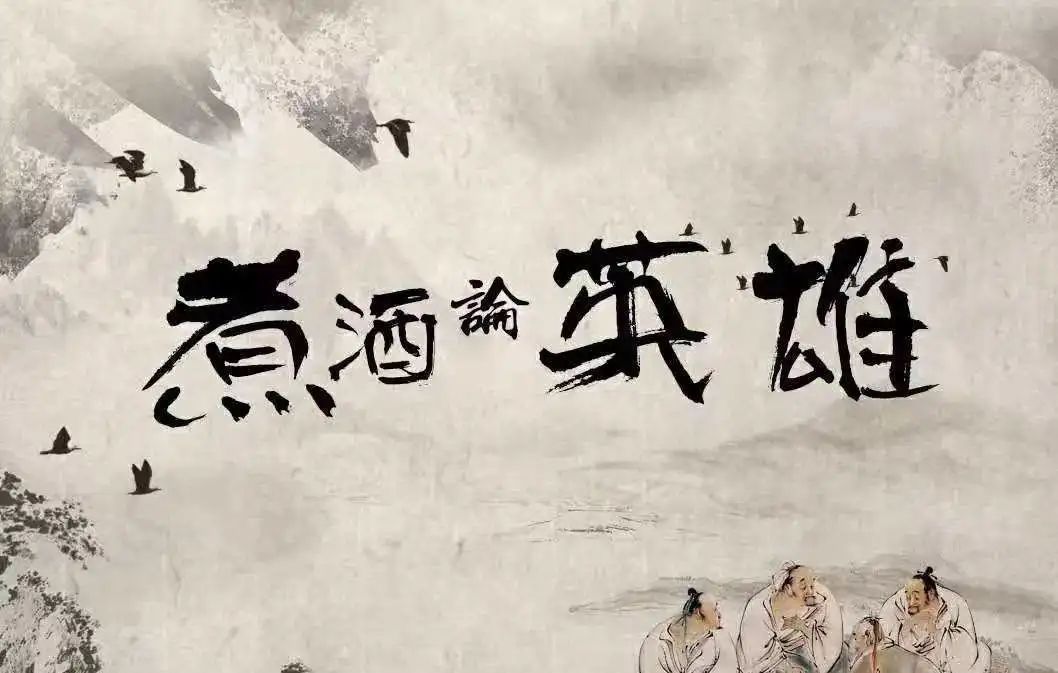 煮酒論英雄